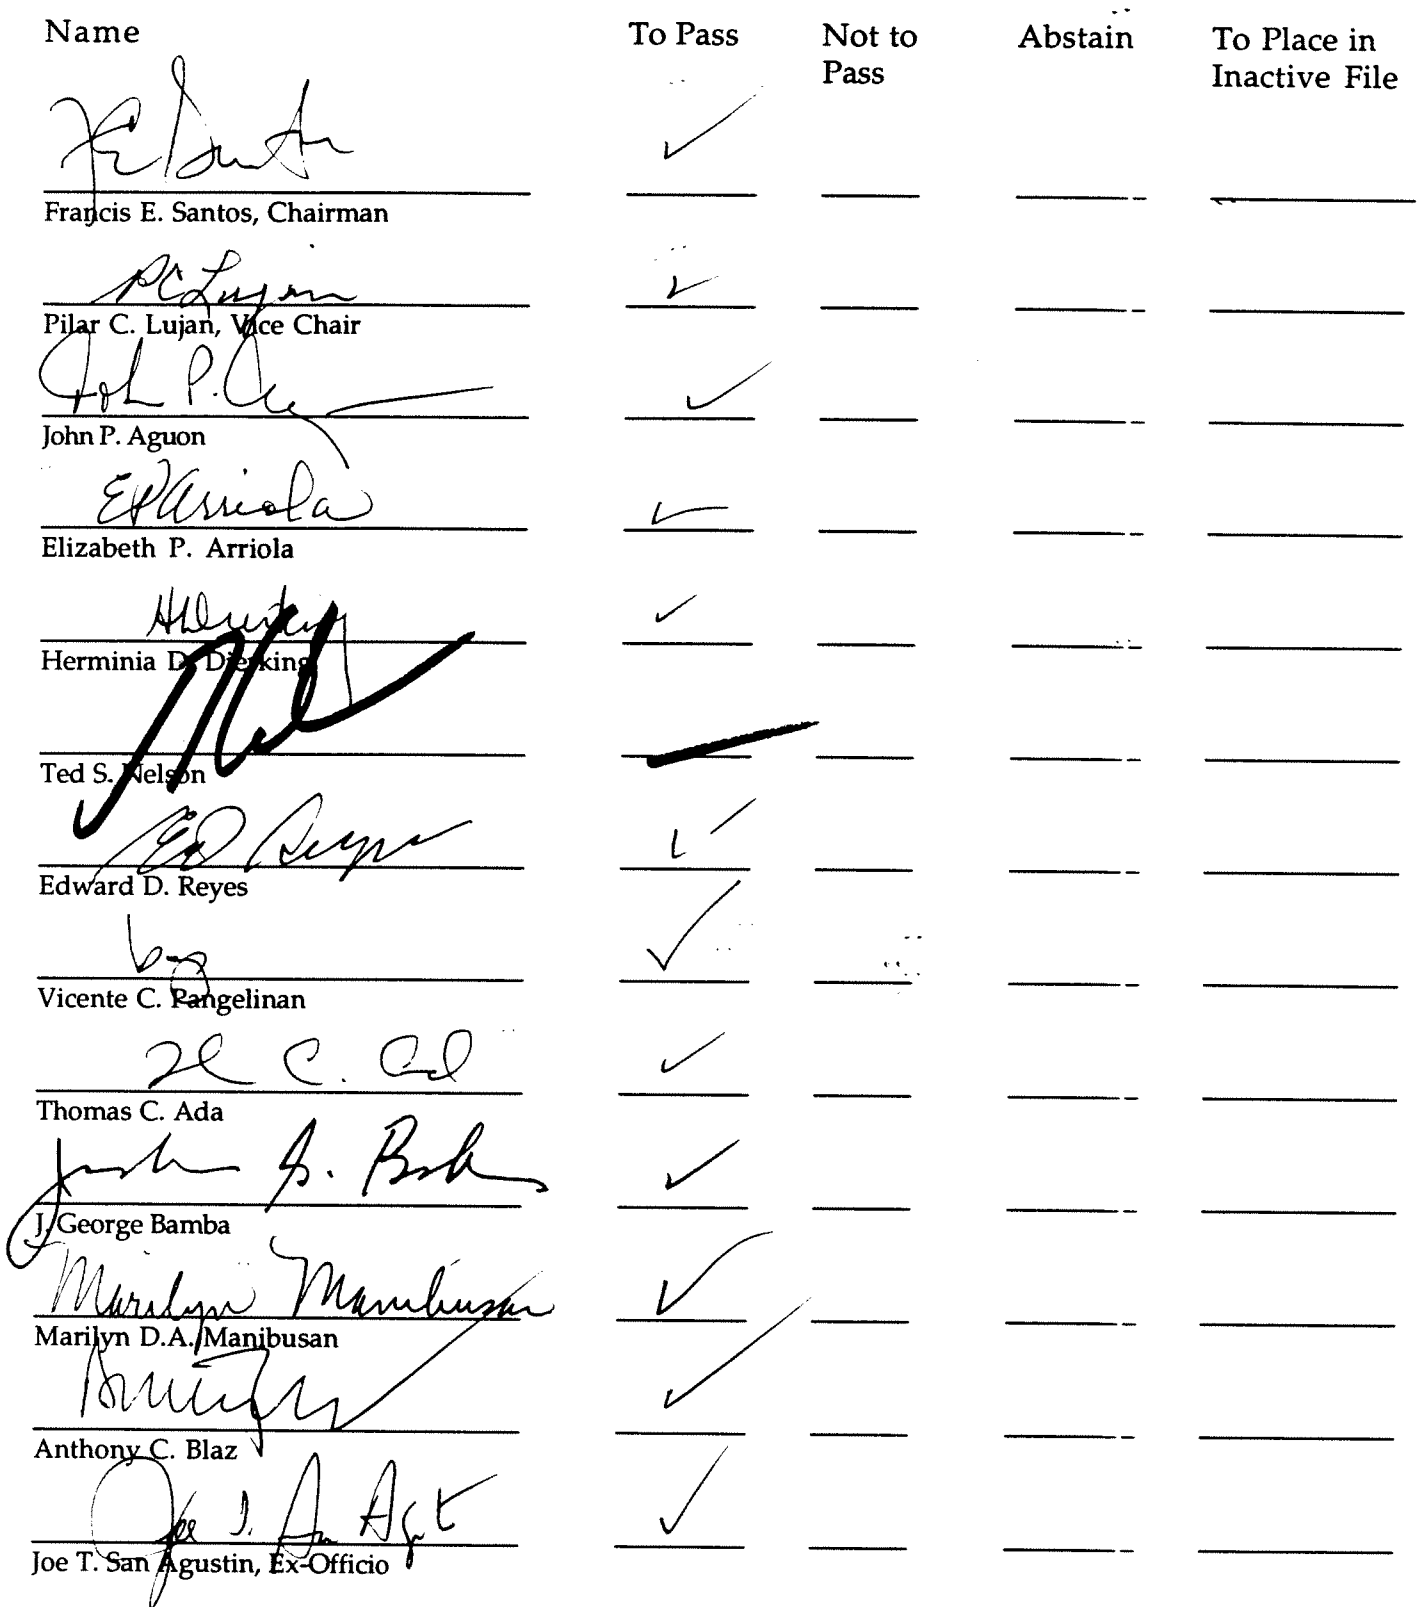 Name To Pass Not to Pass Abstain To Place in Inactive File
Francis E. Santos, Chairman
PC Lujan
Pilar C. Lujan, Vice Chair
John P.
John P. Aguon
EP Arriola
Elizabeth P. Arriola
Herminia D. Dierking
Ted S. Nelson
Ed Reyes
Edward D. Reyes
Vicente C. Pangelinan
Thomas C. Ada
J. George Bamba
Marilyn Manibusan
Marilyn D.A. Manibusan
Anthony C. Blaz
Joe T. San Agust
Joe T. San Agustin, Ex-Officio